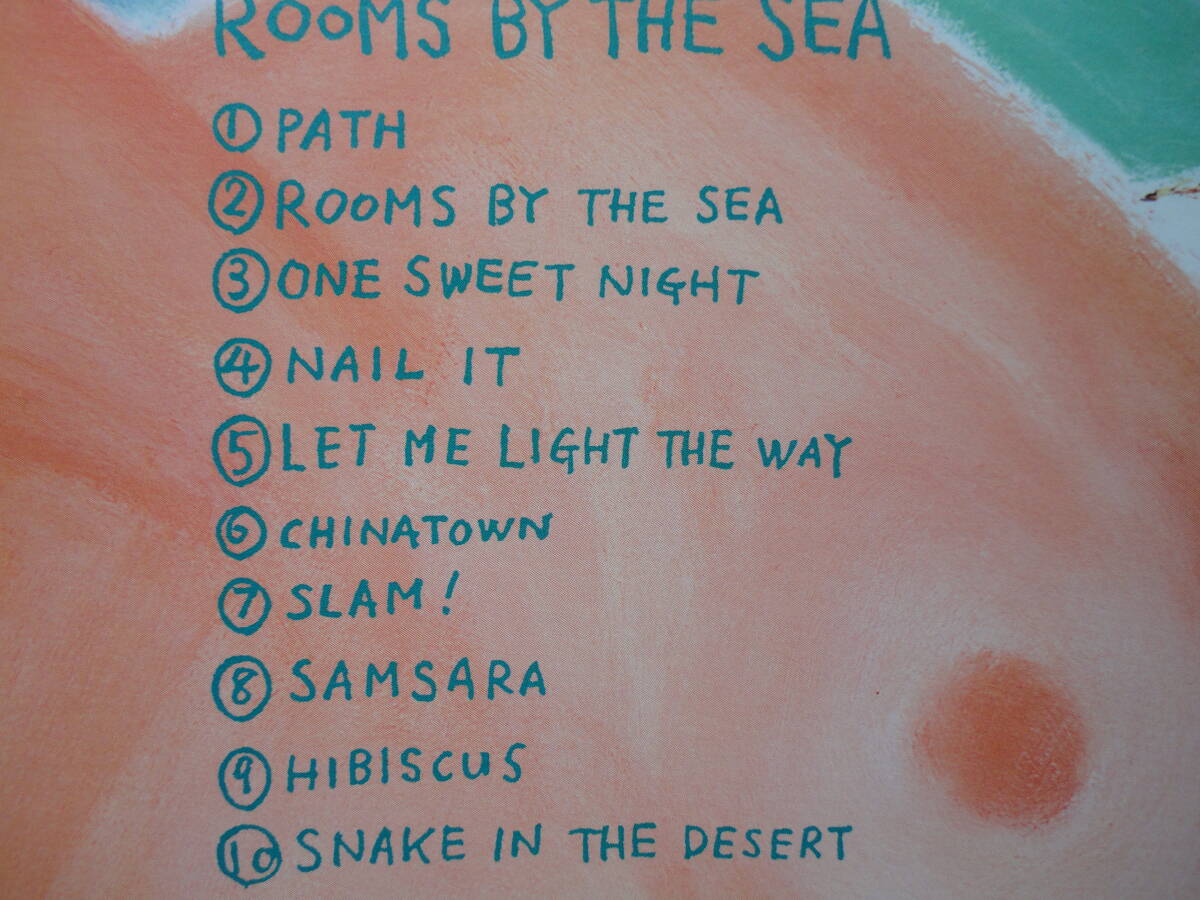 ROOMS BY THE SEA
① PATH
② ROOMS BY THE SEA
③ ONE SWEET NIGHT
④ NAIL IT
⑤ LET ME LIGHT THE WAY
⑥ CHINATOWN
⑦ SLAM!
⑧ SAMSARA
⑨ HIBISCUS
⑩ SNAKE IN THE DESERT